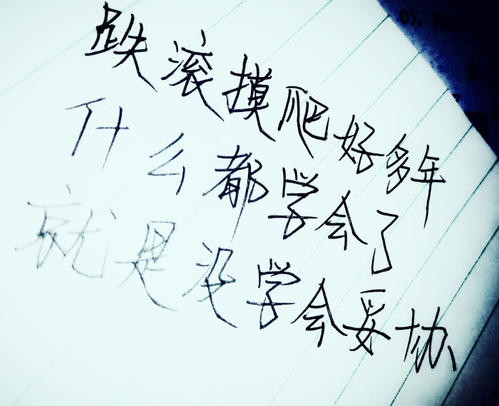 跌滚摸爬好多年
什么都学会了
就是没学会妥协